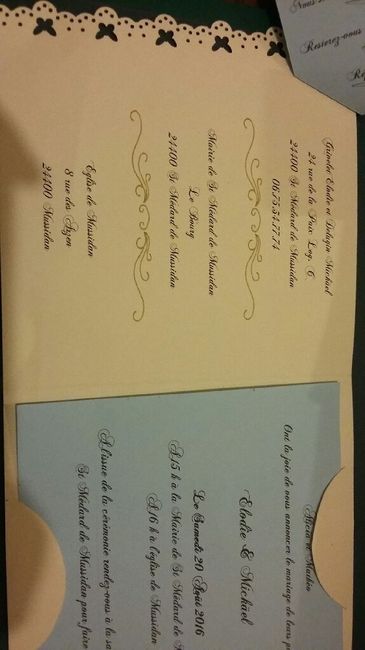 Grinder Elodie et Delugin Mickäel
24 rue de la Paix Log. C.
24400 St Médard de Mussidan
06.73.34.77.74
Mairie de St Médard de Mussidan
Le Bourg
24400 St Médard de Mussidan
Eglise de Mussidan
8 rue des
24400 Mussidan
et
Ont la joie de vous annoncer le mariage de leurs
Elodie & Mickäel
Le Samedi 20 Août 2016
A 15 h à la Mairie de St Médard de
A 16 h à l'église de Mussidan
A l'issue de la cérémonie rendez-vous à la
St Médard de Mussidan pour faire